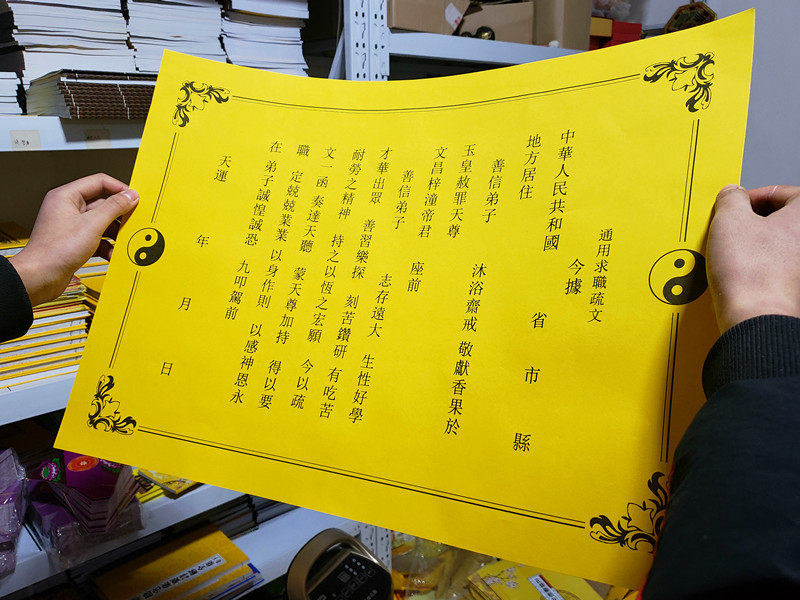 通用求職疏文
今據
中華人民共和國 省 市 縣
地方居住
善信弟子 沐浴齋戒 敬獻香果於
玉皇赦罪天尊
文昌梓潼帝君 座前
善信弟子 志存遠大 生性好學
才華出眾 善習樂探 刻苦鑽研 有吃苦
耐勞之精神 持之以恆之宏願 今以疏
文一函 奏達天聽 蒙天尊加持 得以要
職 定兢兢業業 以身作則 以感神恩永
在 弟子誠惶誠恐 九叩駕前
天運 年 月 日